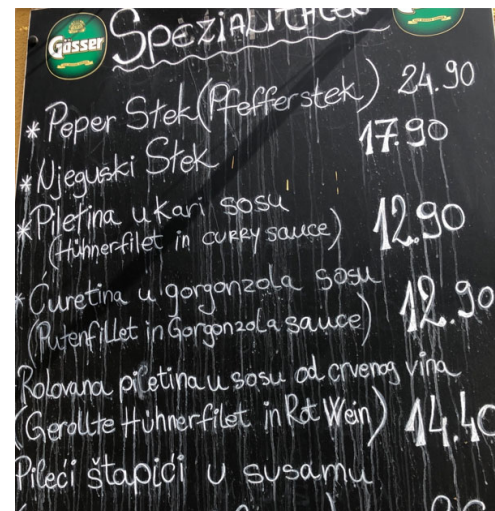 Gösser
SPEZIALITÄTEN
* Peper Stek (Pfefferstek) 24.90
* Njeguški Stek 17.90
* Piletina u kari sosu
(Hühnerfilet in curry sauce) 12.90
* Ćuretina u gorgonzola sosu
(Putenfillet in Gorgonzola sauce) 12.90
Rolovana piletina u sosu od crvenog vina
(Gerollte Hühnerfilet in Rot Wein) 14.40
Pileći štapići u susamu